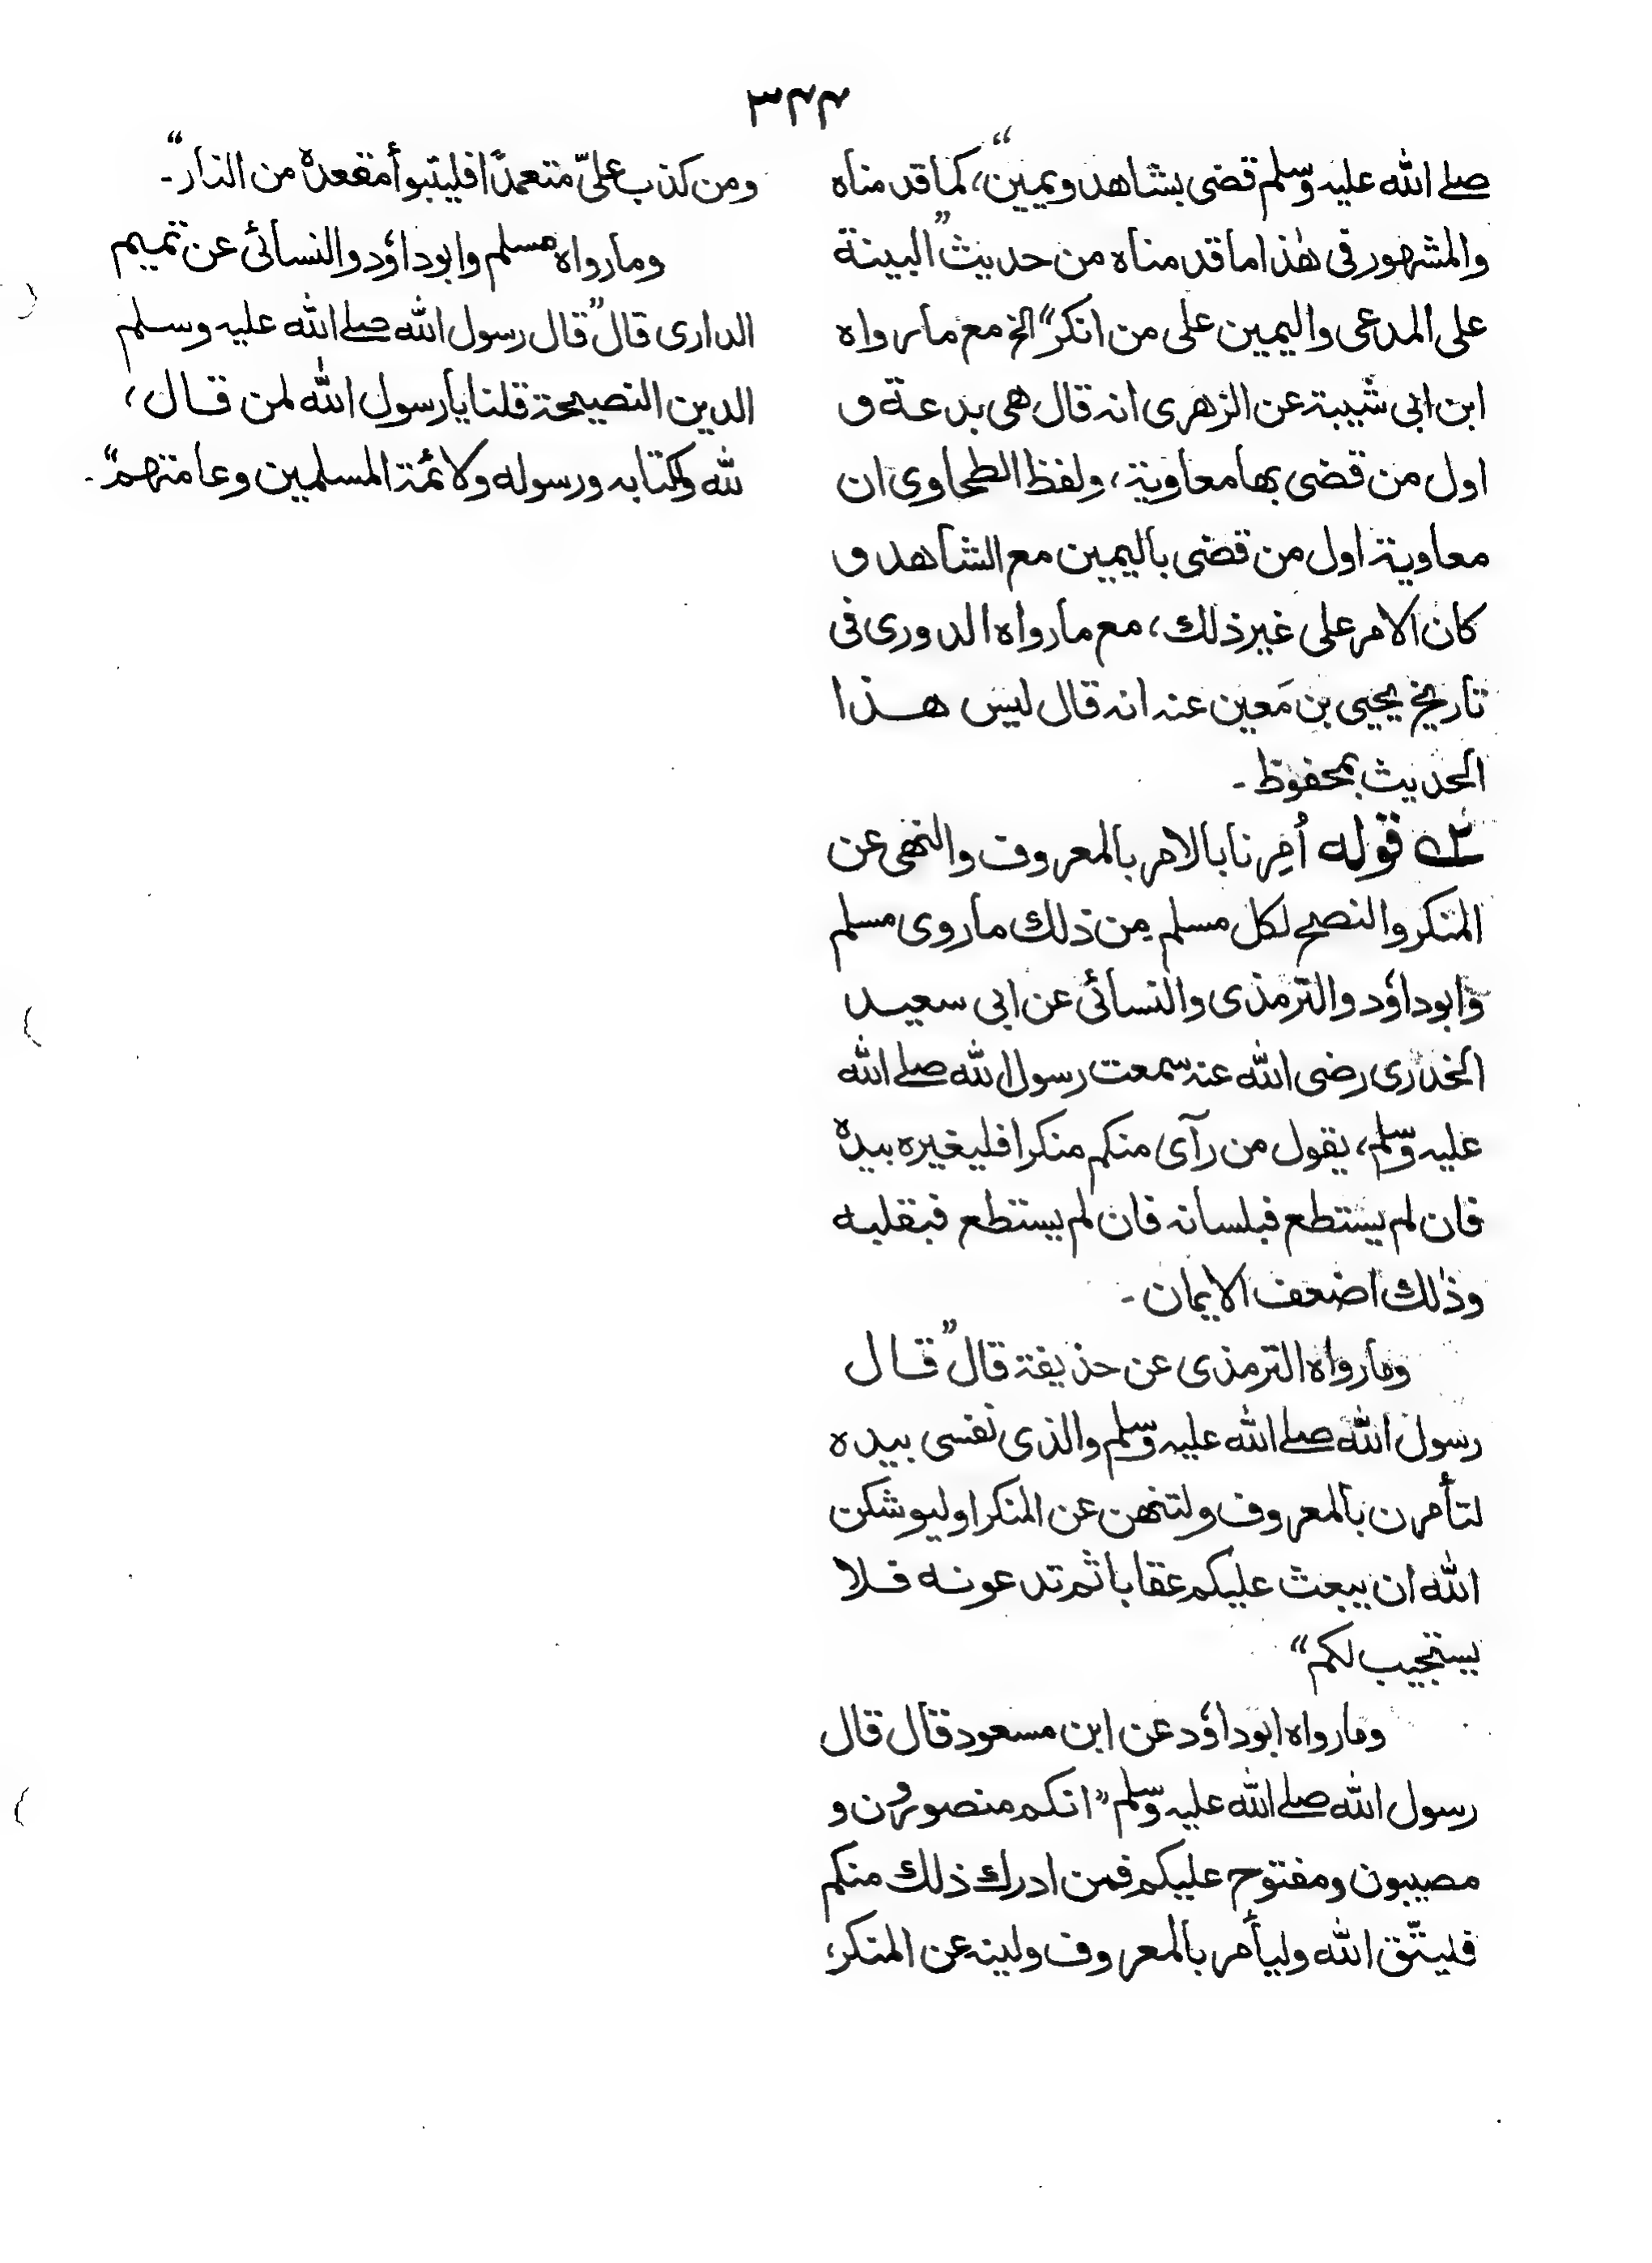 ۳۴۴
صلے الله علیہ وسلم قضی بشاهد ویمین“، کما قد مناه
والمشهور فی هٰذا ما قد مناه من حدیث ”البینة
علی المدعی والیمین علی من انکر“ الخ مع ما رواه
ابن ابی شیبة عن الزهری انہ قال هی بدعة و
اول من قضی بها معاویة، ولفظ الطحاوی ان
معاویة اول من قضی بالیمین مع الشاهد و
کان الامر علی غیر ذلك، مع ما رواه الدوری فی
تاریخ یحیی بن مَعین عنہ انہ قال لیس هذا
الحدیث بمحفوظ ۔
۲ قولہ اُمِرنا بالامر بالمعروف والنهی عن
المنکر والنصح لکل مسلم من ذلك ما روی مسلم
وابوداؤد والترمذی والنسائی عن ابی سعید
الخدری رضی الله عنہ سمعت رسول الله صلے الله
علیہ وسلم، یقول من رآی منکم منکرا فلیغیره بیده
فان لم یستطع فبلسانہ فان لم یستطع فبقلبہ
وذٰلك اضعف الایمان ۔
وما رواه الترمذی عن حذیفة قال ”قال
رسول الله صلے الله علیہ وسلم والذی نفسی بیده
لتأمرن بالمعروف ولتنهن عن المنکر اولیوشکن
الله ان یبعث علیکم عقابا ثم تدعونہ فلا
یستجیب لکم“
وما رواه ابوداؤد عن ابن مسعود قال قال
رسول الله صلے الله علیہ وسلم ”انکم منصورون و
مصیبون ومفتوح علیکم فمن ادرك ذلك منکم
فلیتّق الله ولیأمر بالمعروف ولینہ عن المنکر،
ومن کذب علیّ متعمدًا فلیتبوأ مقعده من النار“۔
وما رواه مسلم وابوداؤد والنسائی عن تمیم
الداری قال ”قال رسول الله صلے الله علیہ وسلم
الدین النصیحة قلنا یا رسول الله لمن قال،
لله ولکتابہ ورسولہ ولائمة المسلمین وعامتهم“۔